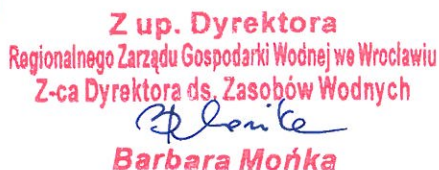 Z up. Dyrektora
Regionalnego Zarządu Gospodarki Wodnej we Wrocławiu
Z-ca Dyrektora ds. Zasobów Wodnych
Barbara Mońka